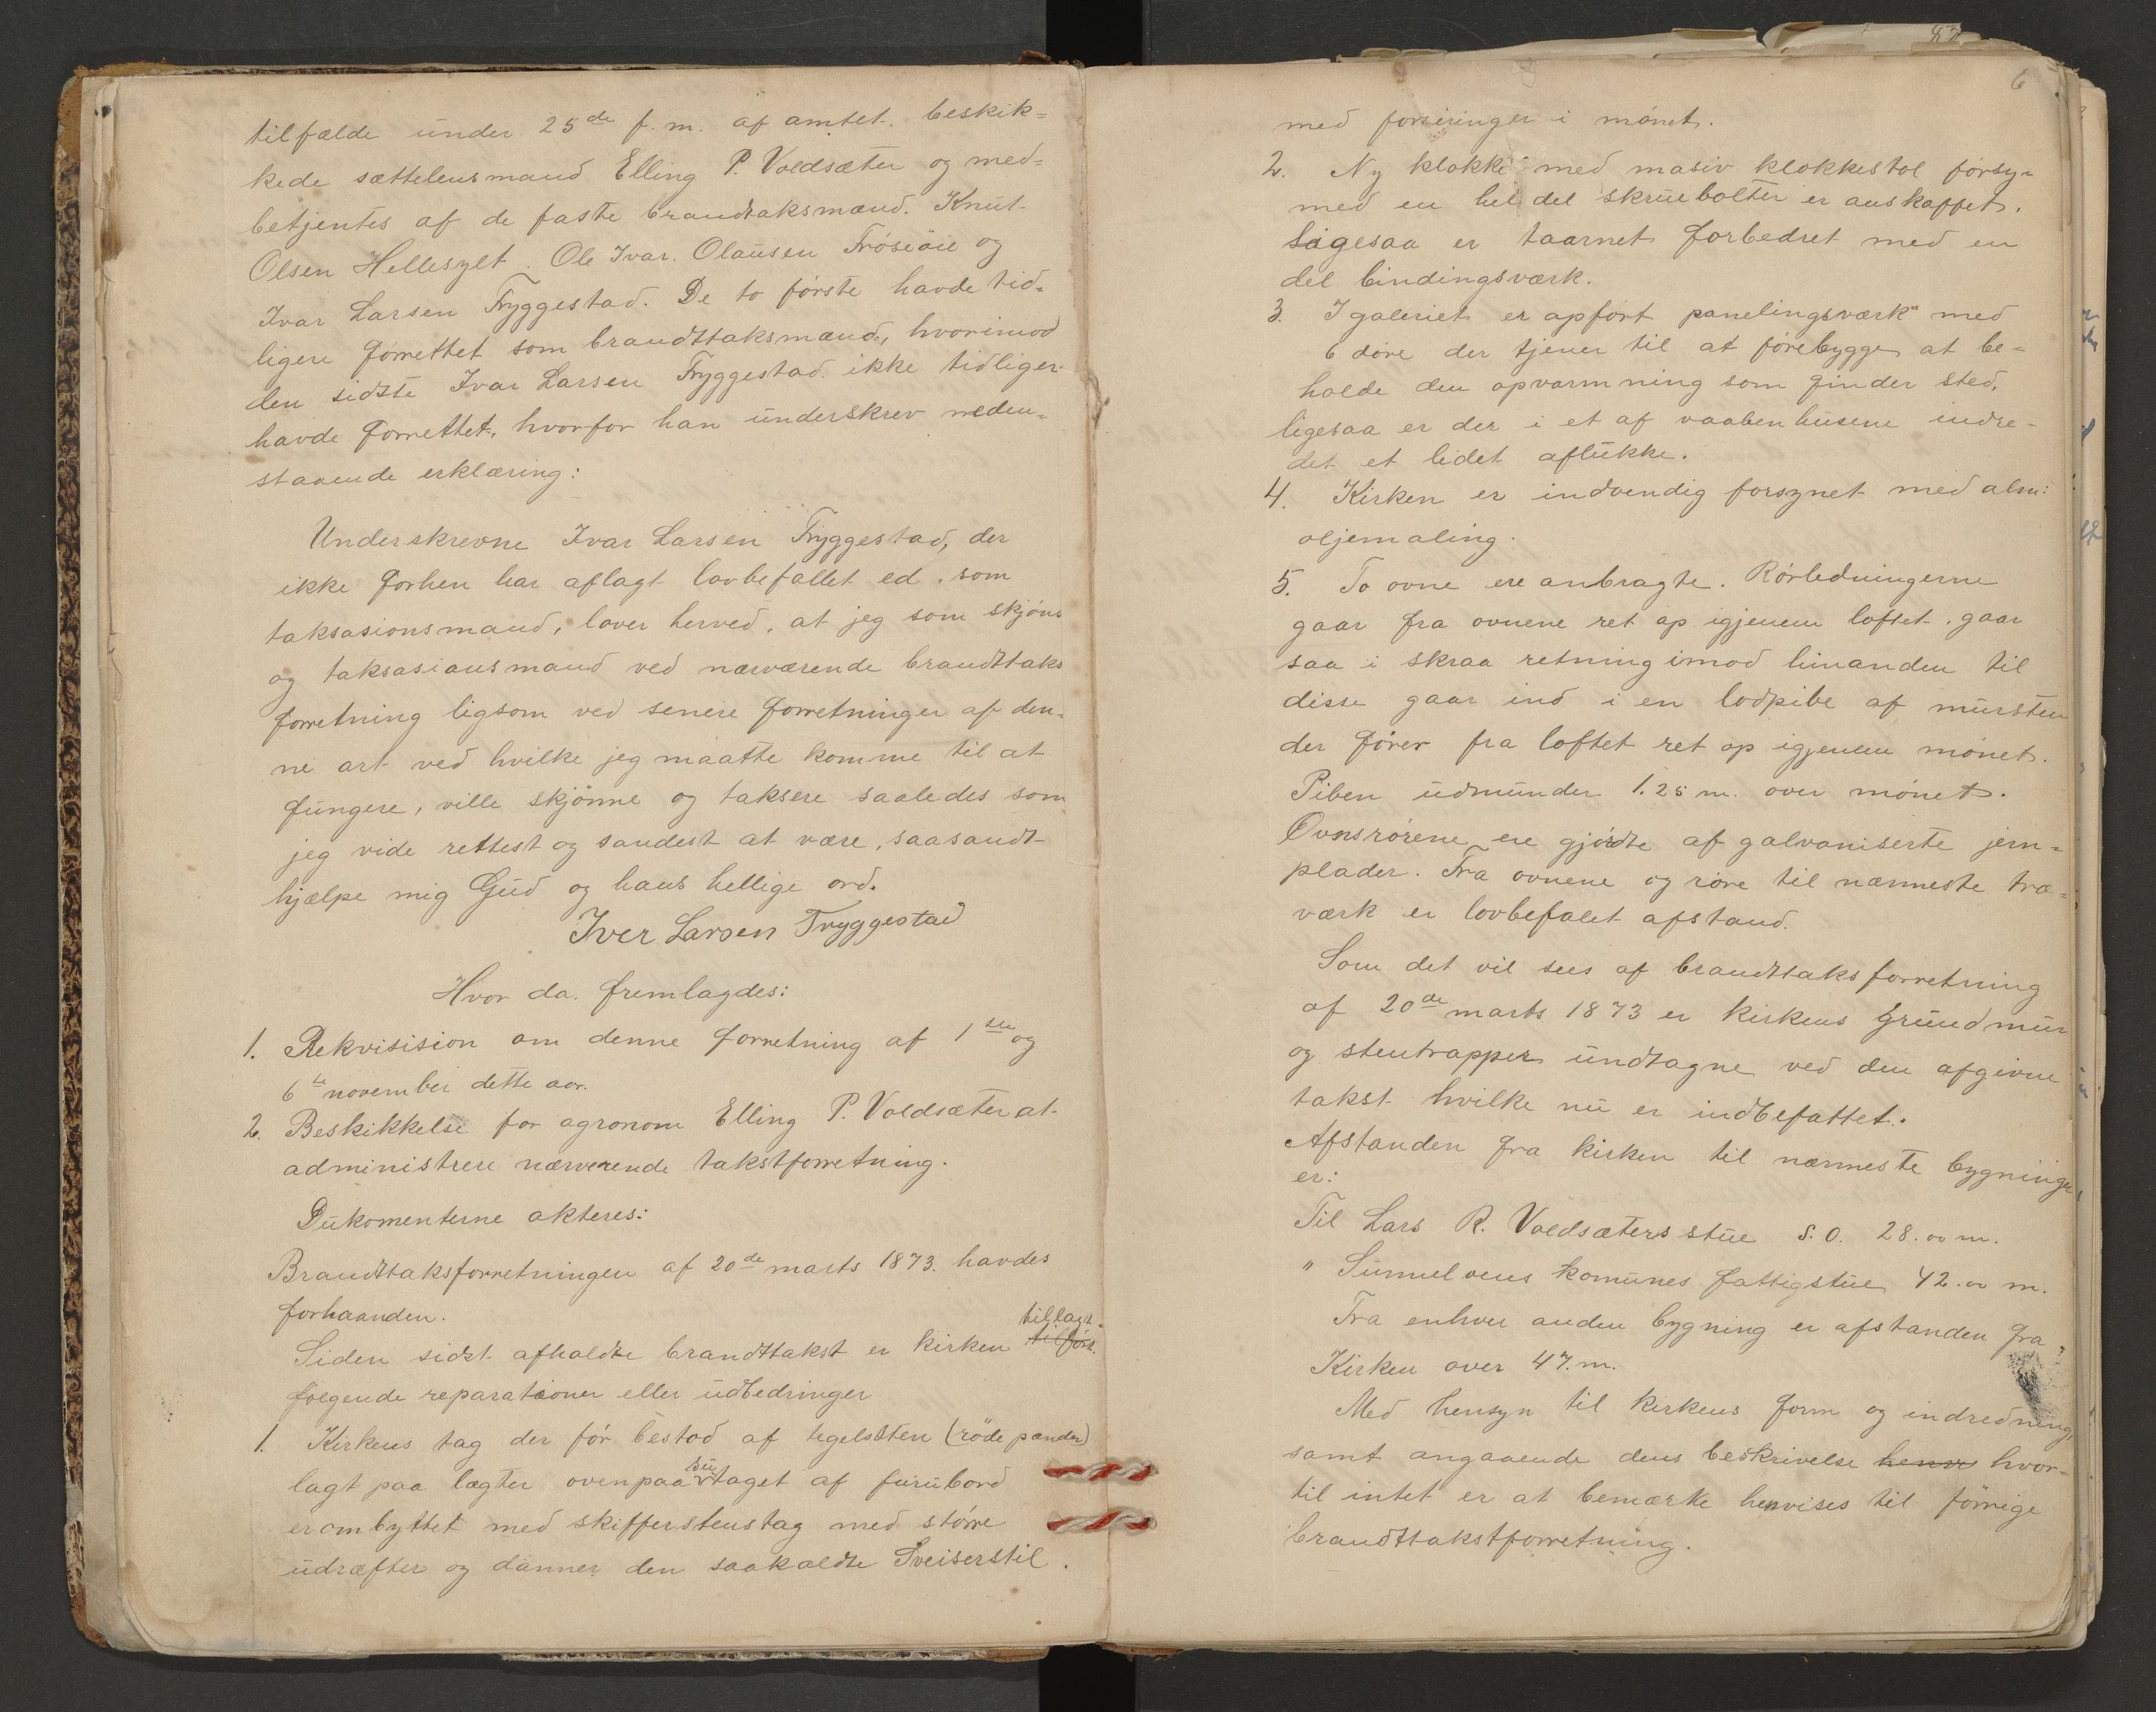 tilfælde under 25de f. m. af amtet beskik=
kede sættelensmand Elling P. Voldsæter og med=
betjentes af de faste brandtaksmænd. Knut
Olsen Hellesylt. Ole Ivar. Olausen Frøsiøie og
Ivar Larsen Tryggestad. De to første havde tid=
ligere forrettet som brandttaksmænd, hvorimod
den sidste Ivar Larsen Tryggestad ikke tidliger
havde forrettet, hvorfor han underskrev neden=
staaende erklæring:
Underskrevne Ivar Larsen Tryggestad, der
ikke forhen har aflagt lovbefallet ed, som
taksasionsmand, lover herved, at jeg som skjøns
og taksasionsmand ved nærværende brandttaks
forretning ligsom ved senere forretninger af den=
ne art ved hvilke jeg maatte komme til at
fungere, ville skjønne og taksere saaledes som
jeg vide rettest og sandest at være, saasandt
hjælpe mig Gud og hans hellige ord.
Iver Larsen Tryggestad
Hvor da. fremlagdes:
1. Rekvisision om denne forretning af 1ste og
6te november dette aar.
2. Beskikkelse for agronom Elling P. Voldsæter at
administrere nærverende takstforretning.
Dukomenterne akteres:
Brandttaksforretningen af 20de marts 1873. havdes
forhaanden.
Siden sidst afholdte brandttakst er kirken tilført. tillagt
følgende reparationer eller udbedringer
1. Kirkens tag der før bestod af tegelsten (røde pander)
lagt paa lægter ovenpaa su taget af furubord
er ombyttet med skiffersteustag med større
udræfter og danner den saakaldte Sveiserstil.
6
med forsiringer i mønet.
2. Ny klokke med masiv klokkestol forsy=
med en hel del skruebolter er anskaffet.
Ligesaa er taarnet forbedret med en
del bindingsværk.
3. I galeriet er opført panelingsværk med
6 døre der tjener til at forebygge at be=
holde den opvarmning som finder sted,
ligesaa er der i et af vaabenhusene indre-
det et lidet aflukke.
4. Kirken er indvendig forsynet med alm:
oljemaling.
5. To ovne ere anbragte. Rørledningerne
gaar fra ovnene ret op igjenem loftet, gaar
saa i skraa retning imod hinanden til
disse gaar ind i en lodpibe af mursten
der fører fra loftet ret op igjenem mønet.
Piben udmunder 1.25 m. over mønet.
Ovnsrørene ere gjordte af galvaniserte jern=
plader. Fra ovnene og røre til nærmeste træ=
værk er lovbefalet afstand.
Som det vil sees af brandttaksforretning
af 20de marts 1873 er kirkens Grundmur
og stentrapper undtagne ved den afgivne
takst hvilke nu er indbefattet.
Afstanden fra kirken til nærmeste bygninger
er:
Til Lars R. Voldsæters stue S.O. 28.00 m.
" Sunnelvens komunes fattigstue 42.00 m.
Fra enhver anden bygning er afstanden fra
Kirken over 47. m.
Med hensyn til kirkens form og indredning,
samt angaaende dens beskrivelse henv hvor=
til intet er at bemærke henvises til forrige
brandttakstforretning.